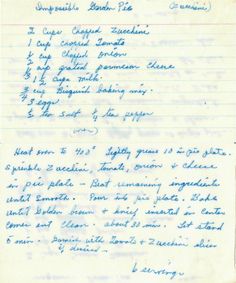 Impossible Garden Pie (Zucchini)
2 cups chopped Zucchini
1 cup chopped Tomato
½ cup chopped onion
⅓ cup grated parmesan cheese
1½ cups milk
¾ cup Bisquick baking mix
3 eggs
½ tea salt ¼ tea pepper
(over)
Heat oven to 400° Lightly grease 10 in pie plate.
Sprinkle Zucchini, tomato, onion & cheese
in pie plate - Beat remaining ingredients
until smooth. Pour into pie plate. Bake
until Golden brown & knife inserted in center
comes out clean. about 30 min. Let stand
5 min. Garnish with Tomato & Zucchini slices
if desired.
6 servings